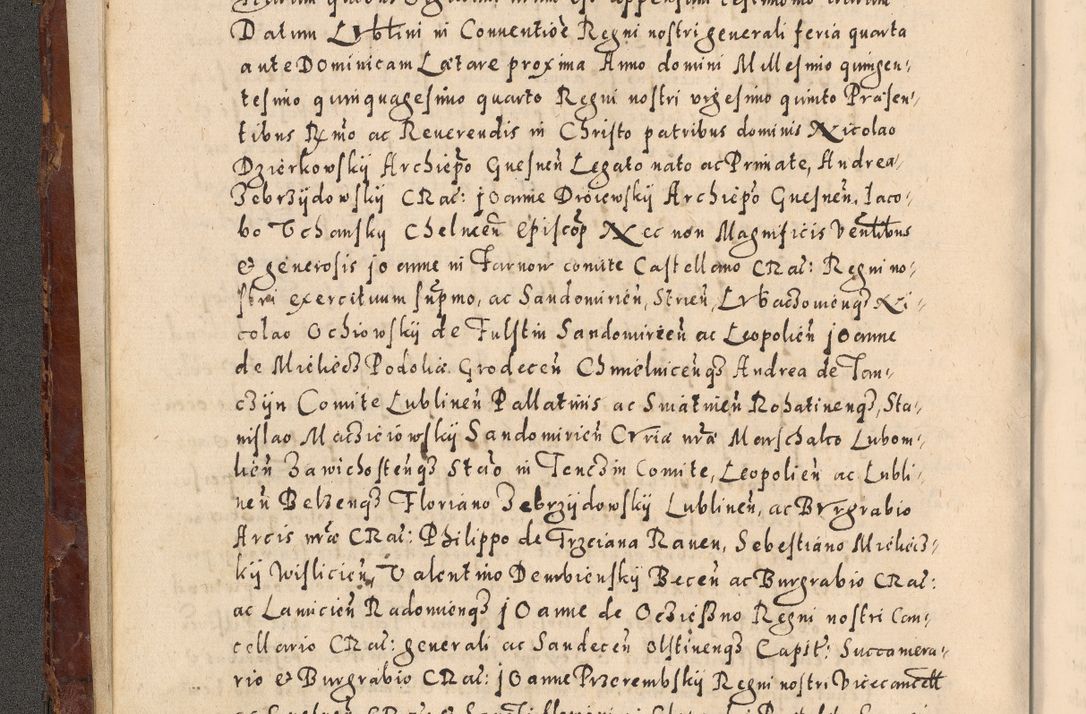 Datum Lublini in Conuentioe Regni nostri generali feria quarta
ante Dominicam Lætare proxima Anno domini Millesimo quingen,
tesimo quinquagesimo quarto Regni nostri vigesimo quinto Præsen,
tibus Rmo ac Reuerendis in Christo patribus dominis Nicolao
Dzierkowskÿ Archiepo Gnesnen Legato nato ac Primate, Andrea,
Zebrzÿdowskÿ CRac: Joanne Droiewskÿ Archiepo Gnesnen. Iaco,
bo Vchansky Chelmcen episcop Nec non Magnificis Venlibus
et generosis Joanne in Tarnow comite Castellano CRac: Regni no,
stri exercituum supmo, ac Sandomirien, Strien, Lubaczowienq3 Ni,
colao Ochiowskÿ de Fulstin Sandomirien ac Leopolien Joanne
de Mieliecz Podoliæ. Grodecen Chmielnicenq3 Andrea de Tan,
czÿn Comite Lublinen Pallatinis ac Sniatinen Rohatinenq3, Sta,
nislao Macziciowskÿ Sandomirien Curiæ nræ Marschalco Lubom,
lien Zawichostenq3 Stao in Tenczin Comite, Leopolien ac Lubli,
nen Belzenq3 Floriano Zebrzÿdowskÿ Lublinen, ac Burgrabio
Arcis nræ CRac: Philippo de Trzciana Rauen, Sebestiano Mieliecz,
kÿ Wislicien, Valentino Dembienskÿ Becen ac Burgrabio CRac:
ac Lanicien Radomienq3 Joanne de Oczieszno Regni nostri Can,
cellario CRac: generali ac Sandecen Olstinenq3 Capit: Succamera,
rio et Burgrabio CRac: Joanne Przerembskÿ Regni nostri Vicecancell